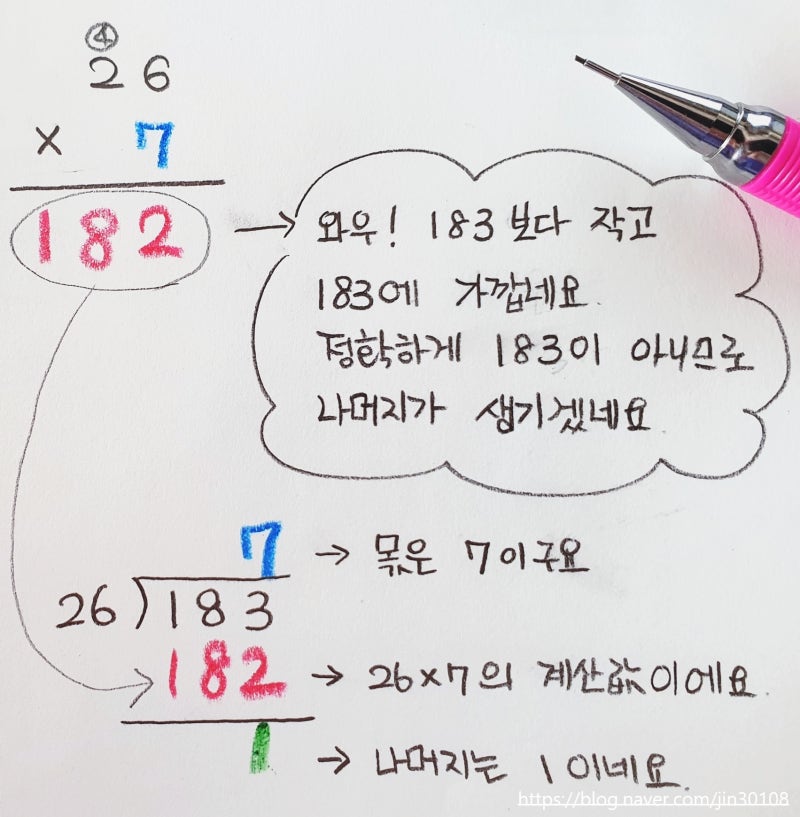 ④
26
× 7
182 → 와우! 183보다 작고
183에 가깝네요.
정확하게 183이 아니므로
나머지가 생기겠네요.
7 → 몫은 7이구요
26)183
182 → 26×7의 계산값이에요.
1 → 나머지는 1이네요.
https://blog.naver.com/jin30108